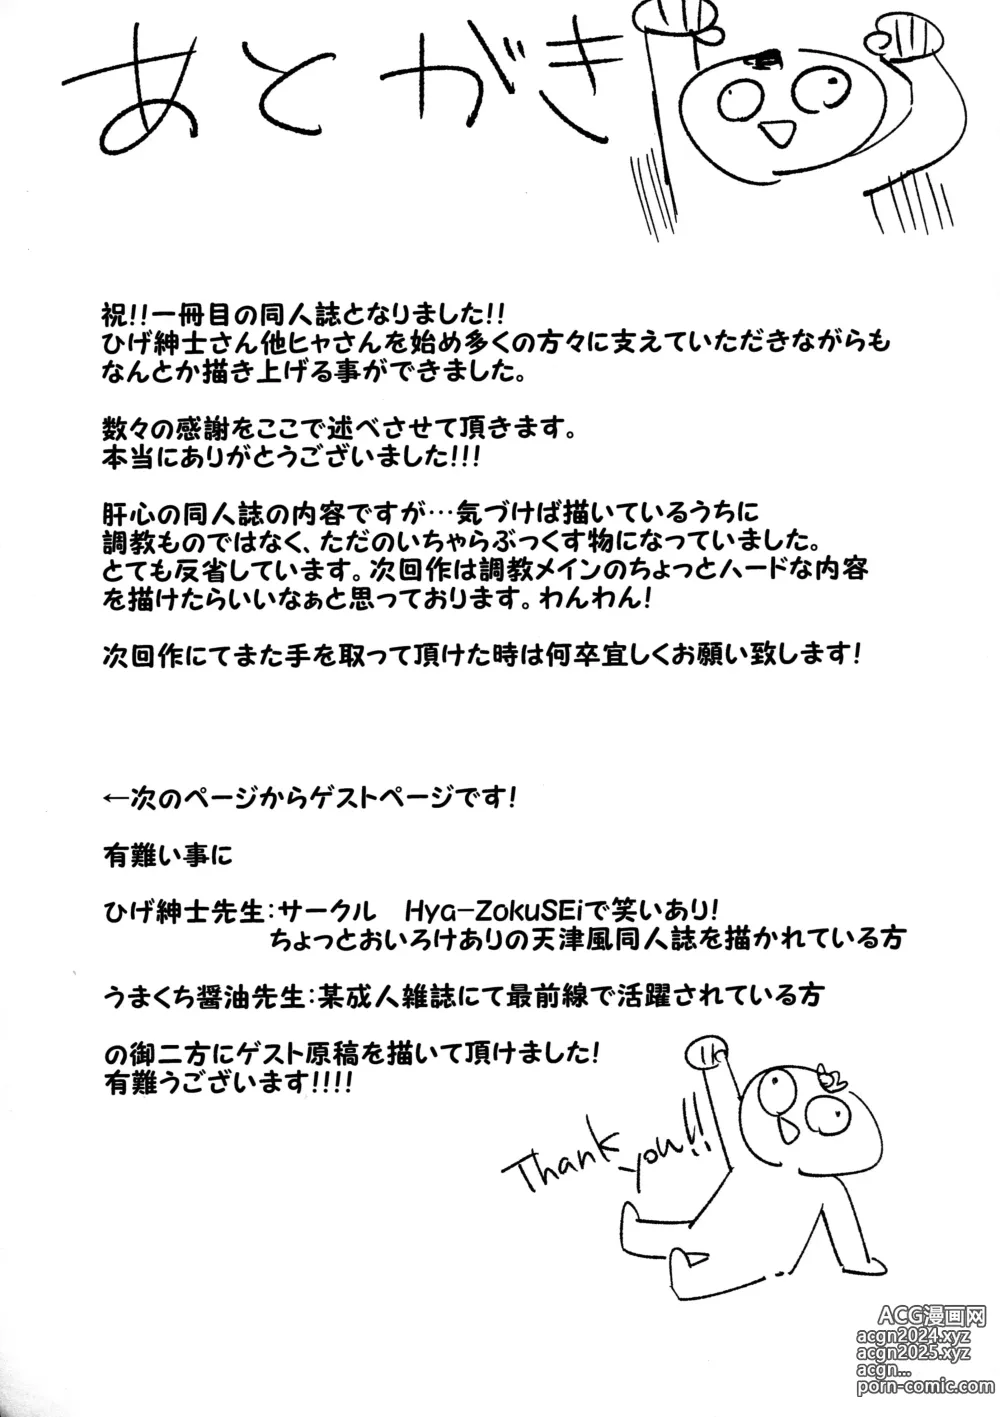 あとがき
祝!!一冊目の同人誌となりました!!
ひげ紳士さん他ヒャさんを始め多くの方々に支えていただきながらも
なんとか描き上げる事ができました。
数々の感謝をここで述べさせて頂きます。
本当にありがとうございました!!!
肝心の同人誌の内容ですが…気づけば描いているうちに
調教ものではなく、ただのいちゃらぶっくす物になっていました。
とても反省しています。次回作は調教メインのちょっとハードな内容
を描けたらいいなぁと思っております。わんわん!
次回作にてまた手を取って頂けた時は何卒宜しくお願い致します!
←次のページからゲストページです!
有難い事に
ひげ紳士先生:サークル　Hya-ZokuSEiで笑いあり!
ちょっとおいろけありの天津風同人誌を描かれている方
うまくち醤油先生:某成人雑誌にて最前線で活躍されている方
の御二方にゲスト原稿を描いて頂けました!
有難うございます!!!!
Thank you!!
ACG漫画网
acgn2024.xyz
acgn2025.xyz
acgn...
porn-comic.com